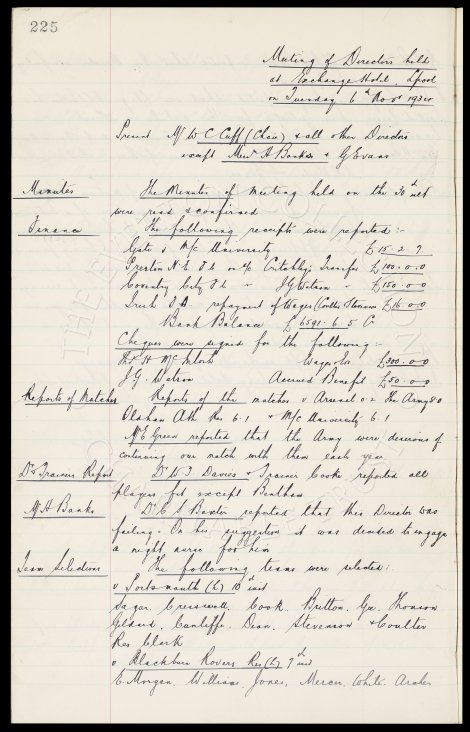 225
Meeting of Directors held
at Exchange Hotel. Lpool
on Tuesday 6th Novr 1934
Present Mr W C Cuff (Chair) & all other Directors
except Messrs A Banks & G Evans
Minutes The Minutes of Meeting held on the 30th ult
were read & confirmed
Finance The following receipts were reported :-
Gate v M/c University £15-2-9
Preston N.E. F.C. on a/c Critchley's Transfer £100-0-0
Coventry City F.C. " J G Watson " £150-0-0
Irish F.A. repayment of Wages (Coulter Stevenson £16-0-0
Bank Balance £6591-6-5 Cr
Cheques were signed for the following :-
Theo H McIntosh Wages &c £300-0-0
J. G. Watson Accrued Benefit £50-0-0
Reports of Matches Reports of the matches v Arsenal 0-2 The Army 8-0
Oldham Ath Res 6-1 & M/c University 6-1
Mr E Green reported that the Army were desirous of
continuing our match with them each year
Dr & Trainers Report Dr W J Davies & Trainer Cooke reported all
players fit except Bentham
Mr A Banks Dr C S Baxter reported that this Director was
failing. On his suggestion it was decided to engage
a night nurse for him
Team Selections The following teams were selected :-
v Portsmouth (h) 10th inst
Sagar. Cresswell. Cook. Britton. Gee. Thomson
Geldard. Cunliffe. Dean. Stevenson & Coulter
Res Clark
v Blackburn Rovers Res (h) 7th inst
E. Morgan. Williams. Jones. Mercer. White. Archer